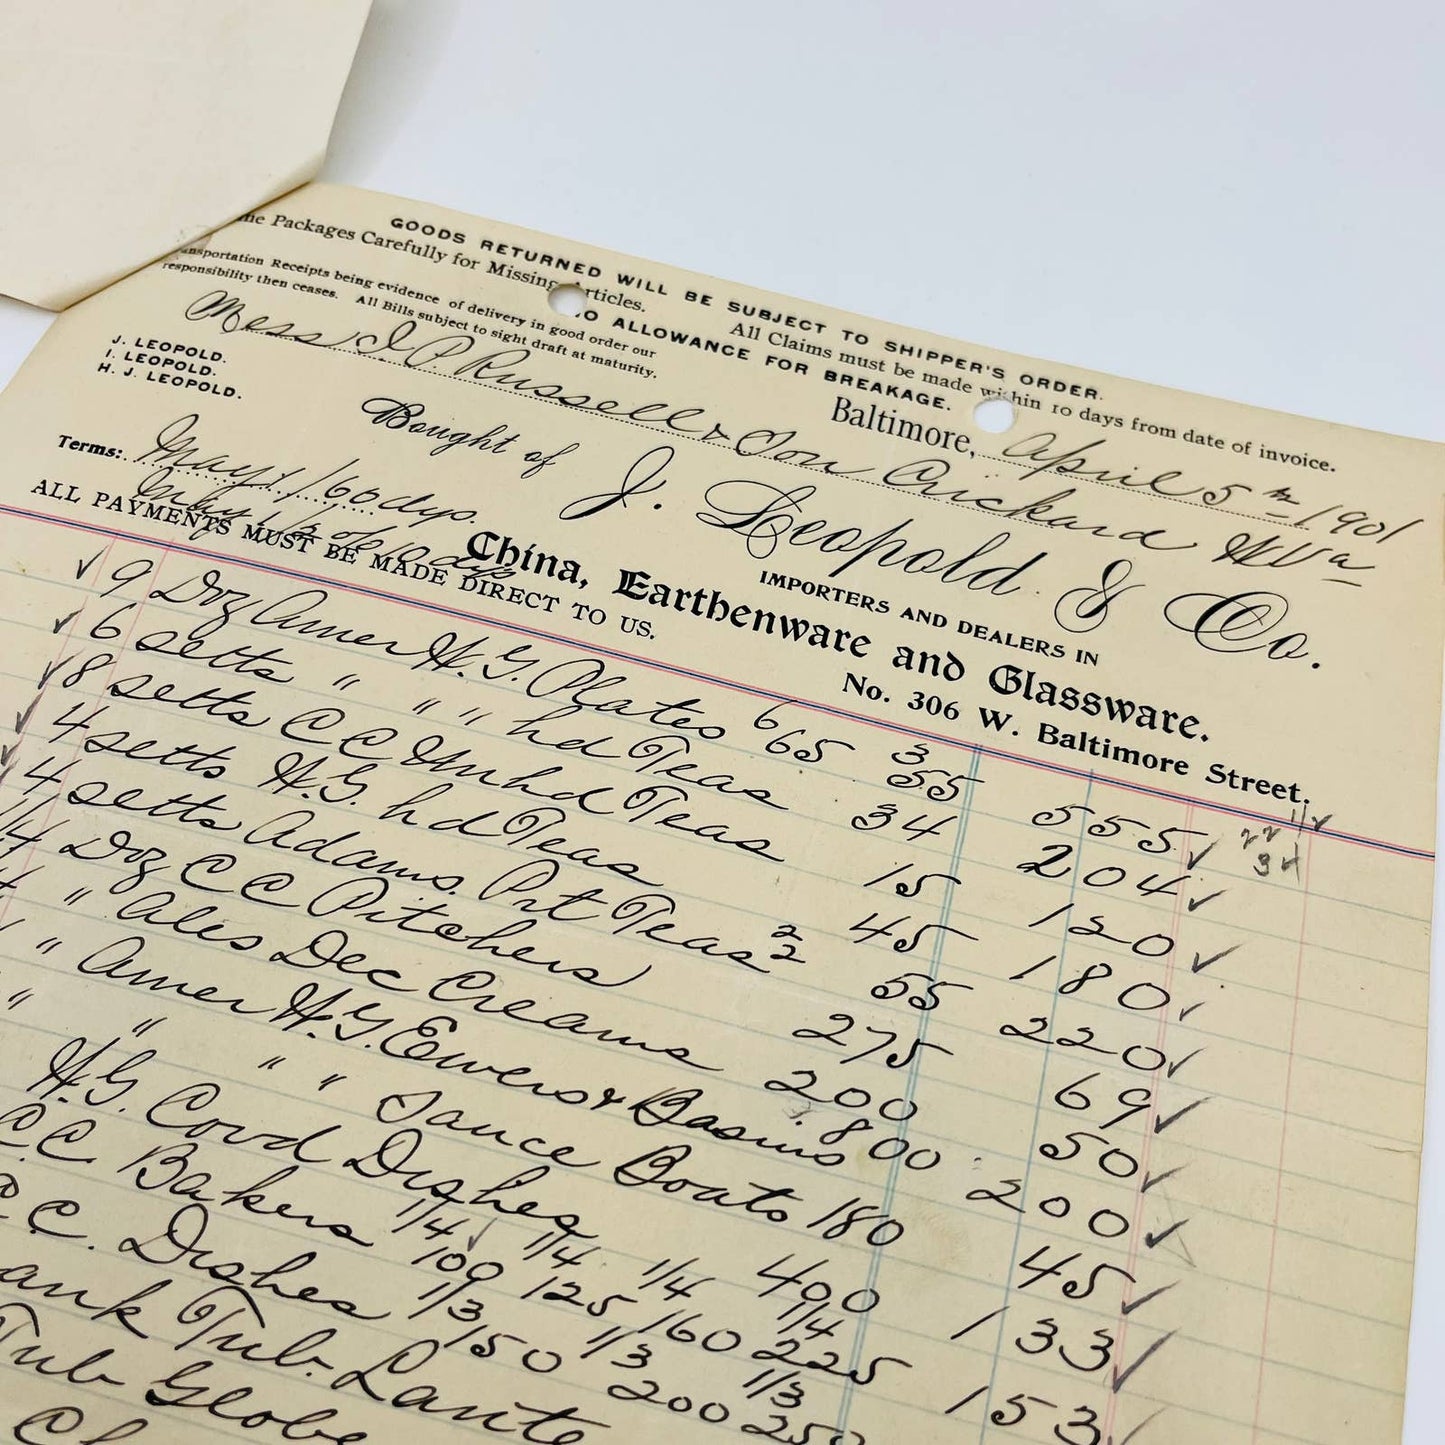 GOODS RETURNED WILL BE SUBJECT TO SHIPPER'S ORDER.
Packages Carefully for Missing Articles. All Claims must be made within 10 days from date of invoice.
NO ALLOWANCE FOR BREAKAGE.
Transportation Receipts being evidence of delivery in good order our
responsibility then ceases. All Bills subject to sight draft at maturity.
Baltimore, April 5th 1901
Mess I. P. Russell & Son Crickard W Va
J. LEOPOLD.
I. LEOPOLD.
H. J. LEOPOLD.
Bought of J. Leopold & Co.
IMPORTERS AND DEALERS IN
Terms: May 1/60 dys.
China, Earthenware and Glassware.
ALL PAYMENTS MUST BE MADE DIRECT TO US.
No. 306 W. Baltimore Street.
9 Doz Amer W. G. Plates 6/65 3/55 555
6 setts " " hd Teas 34 204
8 setts C C Unhd Teas 15 120
4 setts W. G. hd Teas 45 180
4 setts Adams Prt Teas 2/2 55 220
1/4 Doz C C Pitchers 275 69
1/4 " Ales Dec Creams 200 50
" Amer W. G. Ewers & Basins 800 200
" " " " Sauce Boats 180 45
W. G. Covd Dishes 1/4 400 133
C. C. Bakers 1/4 100 1/4 125 1/4 160 1/4 225 153
C. C. Dishes 1/3 150 1/3 200 1/3 250
Tub. Lante
Tub Globe